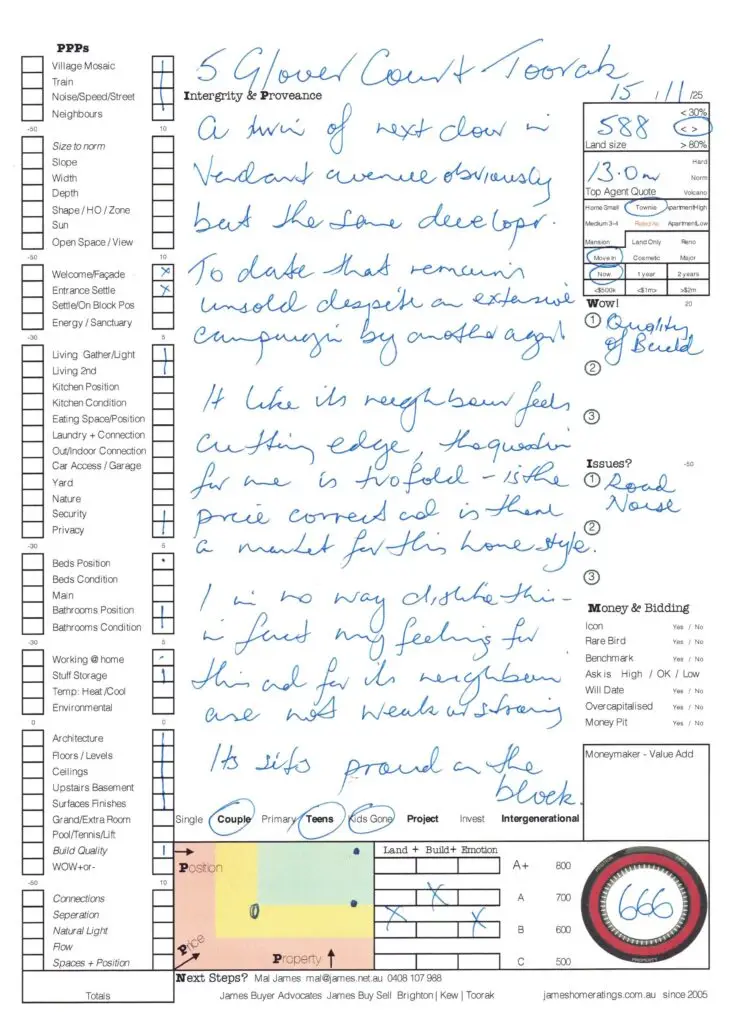 5 Glover Court Toorak
15 / 11 /25
PPPs
Village Mosaic
Train
Noise/Speed/Street
Neighbours
-50 10
Size to norm
Slope
Width
Depth
Shape / HO / Zone
Sun
Open Space / View
-50 10
Welcome/Façade x
Entrance Settle x
Settle/On Block Pos
Energy / Sanctuary
-30 5
Living Gather/Light
Living 2nd
Kitchen Position
Kitchen Condition
Eating Space/Position
Laundry + Connection
Out/Indoor Connection
Car Access / Garage
Yard
Nature
Security
Privacy
-30 -5
Beds Position
Beds Condition
Main
Bathrooms Position
Bathrooms Condition
-30 5
Working @ home
Stuff Storage
Temp: Heat /Cool
Environmental
0 0
Architecture
Floors / Levels
Ceilings
Upstairs Basement
Surfaces Finishes
Grand/Extra Room
Pool/Tennis/Lift
Build Quality
WOW+or-
-50 10
Connections
Seperation
Natural Light
Flow
Spaces + Position
Totals
Intergrity & Proveance
A twin of next door in
Verdant avenue obviously
but the same developr.
To date that remains
unsold despite an extensive
campaign by another agent
It like its neighbour feels
cutting edge, the question
for me is two fold - is the
price correct and is there
a market for this home style.
I in no way dislike this -
in fact my feeling for
this and for its neighbour
are not weak or strong
Its sits proud on the
block.
588
Land size
< 30%
< >
> 80%
13.0m
Top Agent Quote
Hard
Norm
Volcano
Home Small Townie Apartment/High
Medium 3-4 Apartment/Low
Mansion Land Only Reno
Move In Cosmetic Major
Now 1 year 2 years
<$500k <$1m> >$2m
Wow! 20
1 Quality
of Build
2
3
Issues? -50
1 Road
Noise
2
3
Money & Bidding
Icon Yes / No
Rare Bird Yes / No
Benchmark Yes / No
Ask is High / OK / Low
Will Date Yes / No
Overcapitalised Yes / No
Money Pit Yes / No
Moneymaker - Value Add
Single Couple Primary Teens Kids Gone Project Invest Intergenerational
Position
Price
Property
Land + Build + Emotion
A+ 800
A 700
B 600
C 500
X
X X
666
POSITION
PRICE
PROPERTY
Next Steps? Mal James mal@james.net.au 0408 107 968
James Buyer Advocates James Buy Sell Brighton | Kew | Toorak jameshomeratings.com.au since 2005